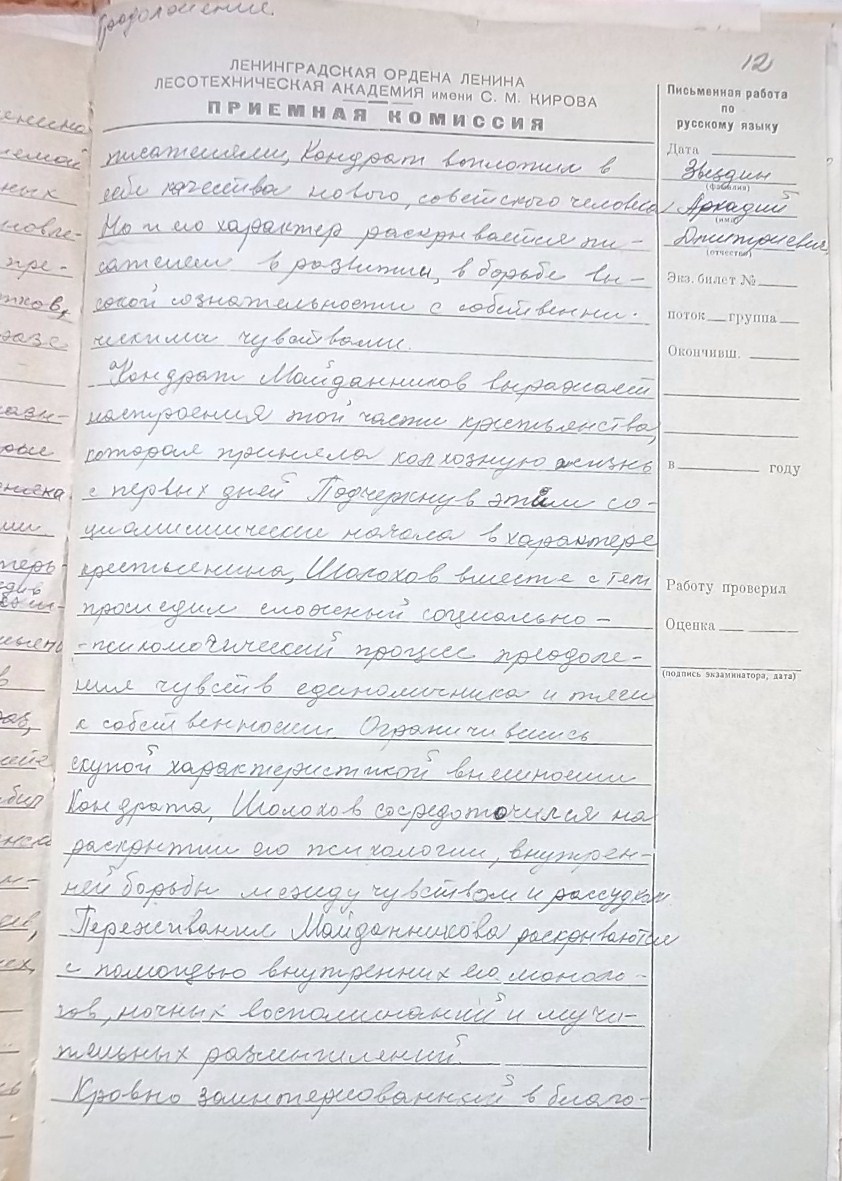 Продолжение.
12
ЛЕНИНГРАДСКАЯ ОРДЕНА ЛЕНИНА
ЛЕСОТЕХНИЧЕСКАЯ АКАДЕМИЯ имени С. М. КИРОВА
ПРИЕМНАЯ КОМИССИЯ
писателями, Кондрат воплотил в
себе качества нового, советского человека.
Но и его характер раскрывается пи-
сателем в развитии, в борьбе вы-
сокой сознательности с собственни-
ческими чувствами.
Кондрат Майданников выражает
настроения той части крестьянства,
которая приняла колхозную жизнь
с первых дней Подчеркнув этим со-
циалистические начала в характере
крестьянина, Шолохов вместе с тем
проследил сложный социально-
-психологический процесс преодоле-
ния чувств единоличника и тяги
к собственности. Ограничившись
скупой характеристикой внешности
Кондрата, Шолохов сосредоточился на
раскрытии его психологии, внутрен-
ней борьбы между чувством и рассудком
Переживания Майданникова раскрываются
с помощью внутренних его моноло-
гов, ночных воспоминаний и мучи-
тельных размышлений.
Кровно заинтересованный в благо-
Письменная работа
по
русскому языку
Дата
Звездин
(фамилия)
Аркадий
(имя)
Дмитриевич
(отчество)
Экз. билет №
поток группа
Окончивш.
в году
Работу проверил
Оценка
(подпись экзаменатора, дата)